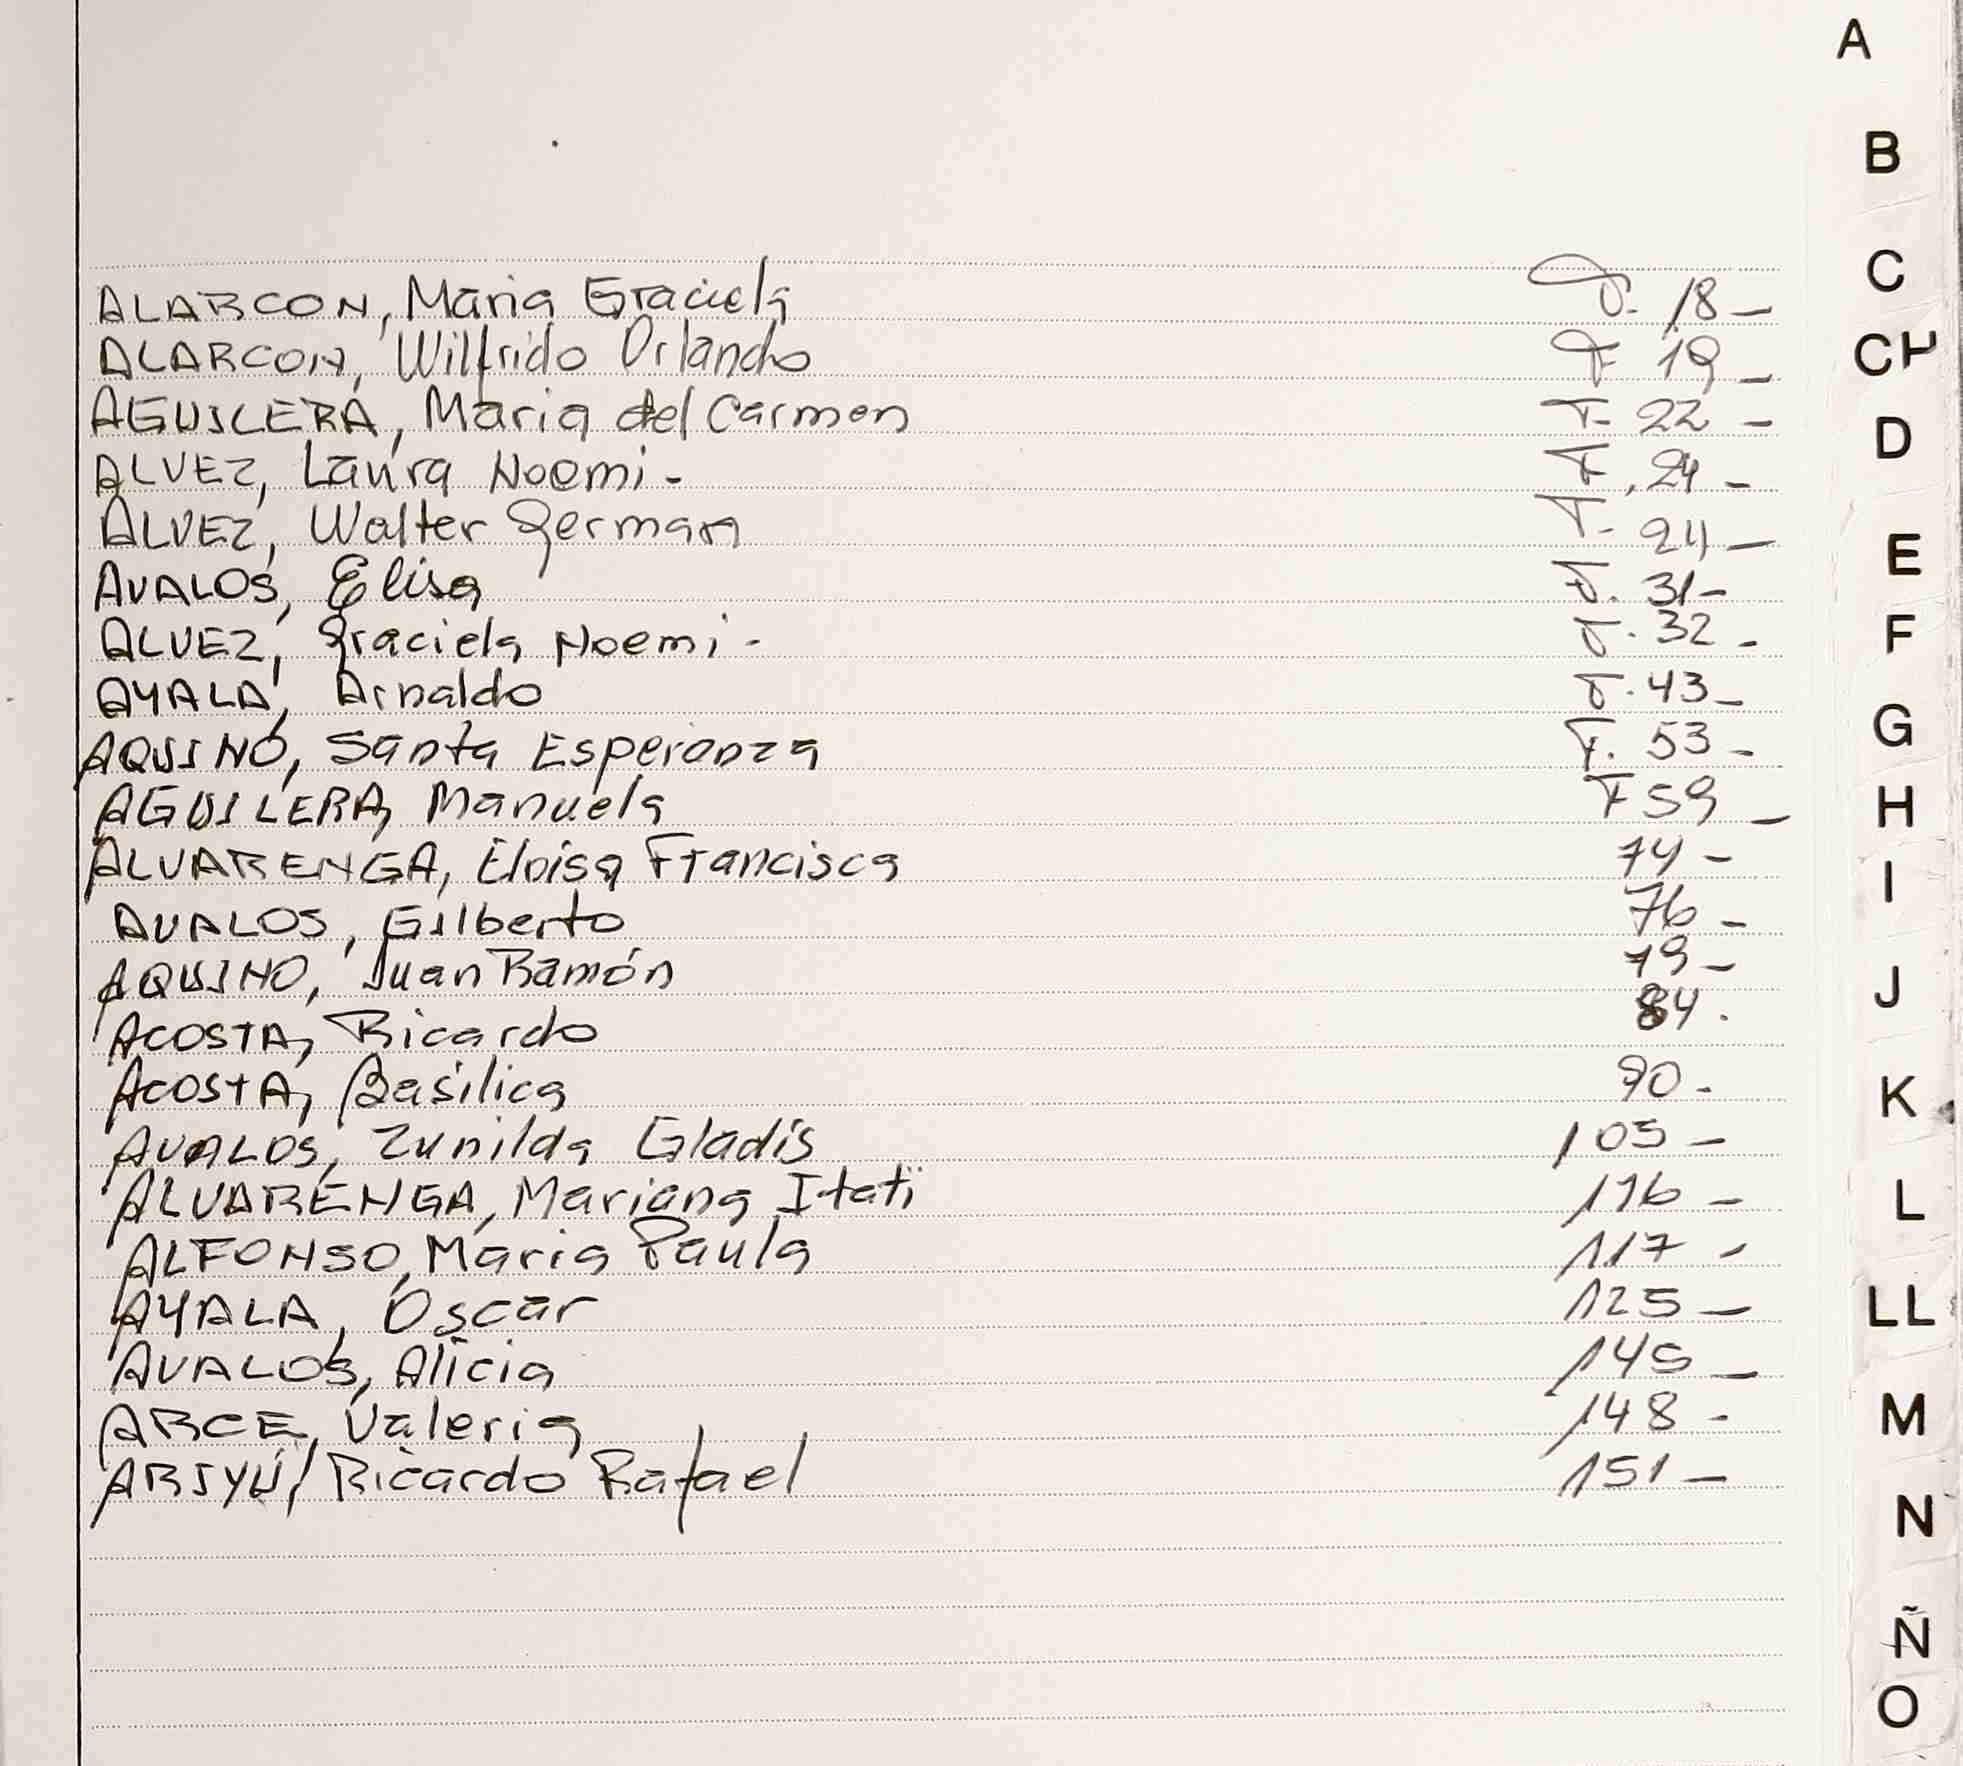 A
B
C
CH
D
E
F
G
H
I
J
K
L
LL
M
N
Ñ
O
ALARCON, Maria Graciela F. 18-
ALARCON, Wilfrido Orlando F 19-
AGUILERA, Maria del Carmen F- 22-
ALVEZ, Laura Noemi- F. 24-
ALVEZ, Walter German F- 24-
AVALOS, Elisa F. 31-
ALVEZ, Graciela Noemi- F. 32-
AYALA, Arnaldo F. 43-
AQUINO, Santa Esperanza F. 53-
AGUILERA, Manuela F 59-
ALVARENGA, Eloisa Francisca 74-
AVALOS, Gilberto 76-
AQUINO, Juan Ramón 79-
ACOSTA, Ricardo 84.
ACOSTA, Basilica 90-
AVALOS, Zunilda Gladis 105-
ALVARENGA, Mariana Itati 116-
ALFONSO, Maria Paula 117-
AYALA, Oscar 125-
AVALOS, Alicia 145-
ARCE, Valeria 148-
ARIYÚ, Ricardo Rafael 151-